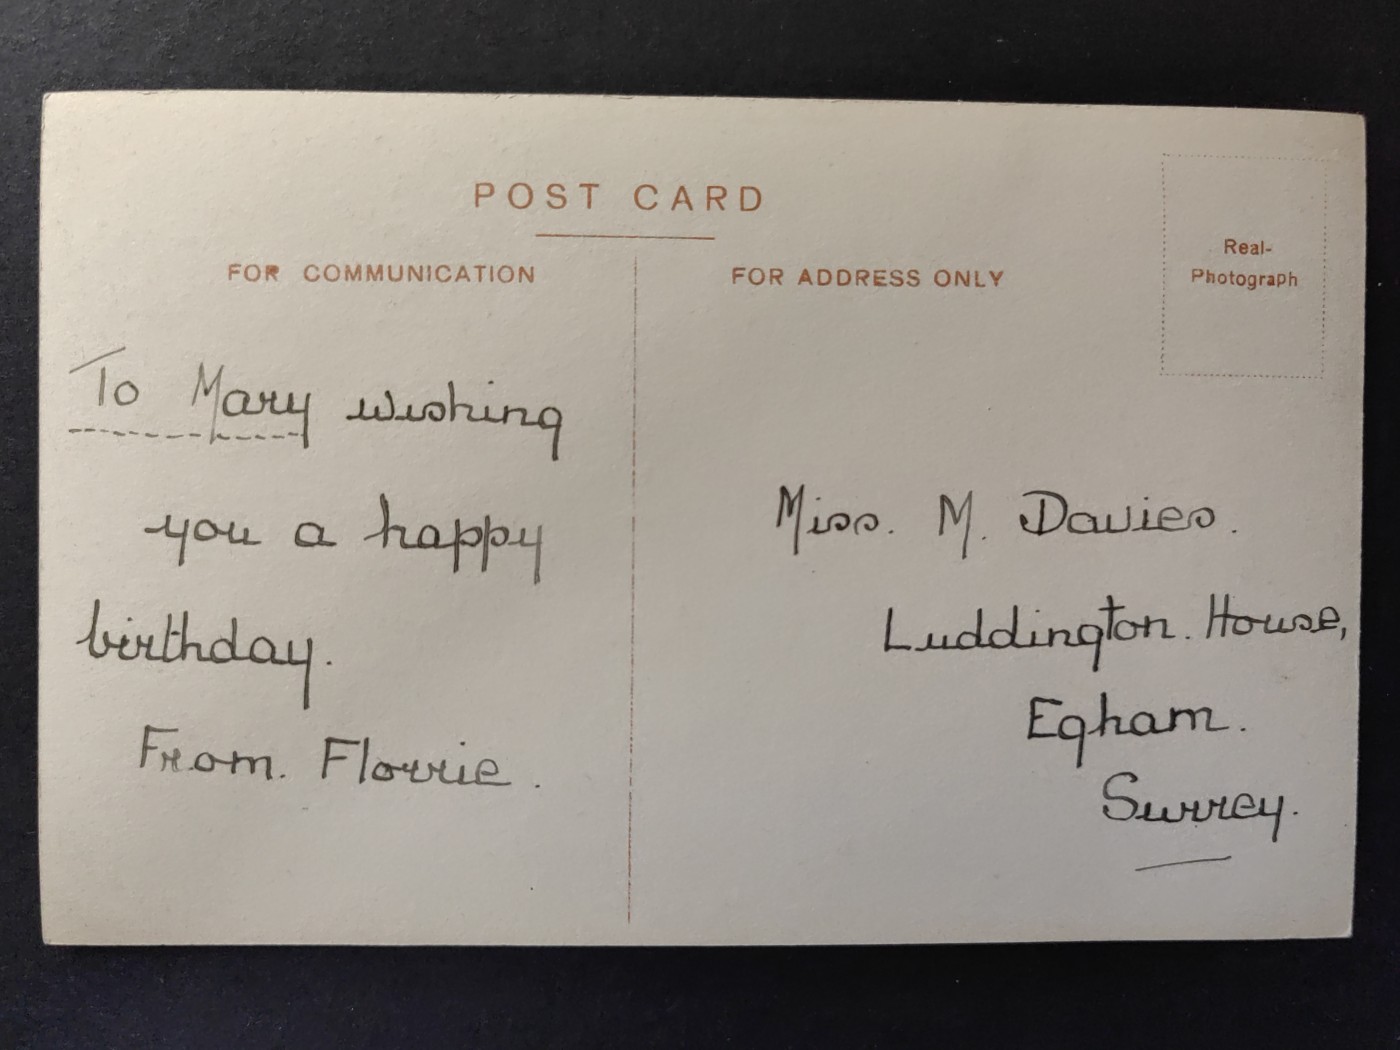 POST CARD
FOR COMMUNICATION
FOR ADDRESS ONLY
Real-
Photograph
To Mary wishing
you a happy
birthday.
From. Florrie.
Miss. M. Davies.
Luddington. House,
Egham.
Surrey.